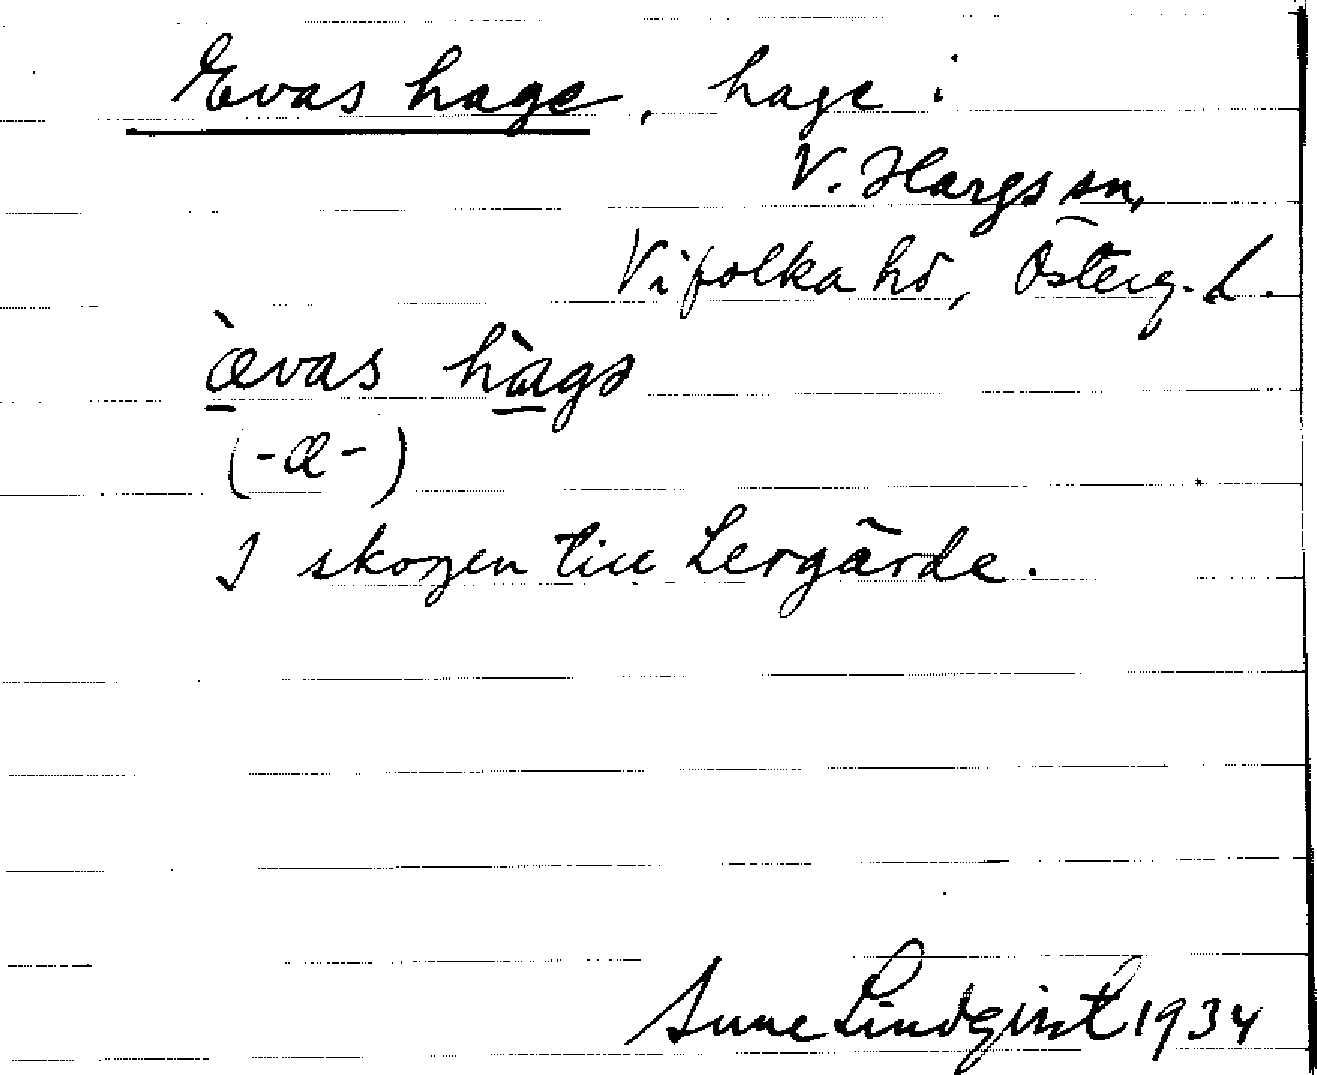 Evas hage, hage i
V. Hargs sn,
Vifolka hd, Österg. L.
æ̀vas hàgə
(-œ-)
I skogen till Lergärde.
Sune Lindqvist 1934